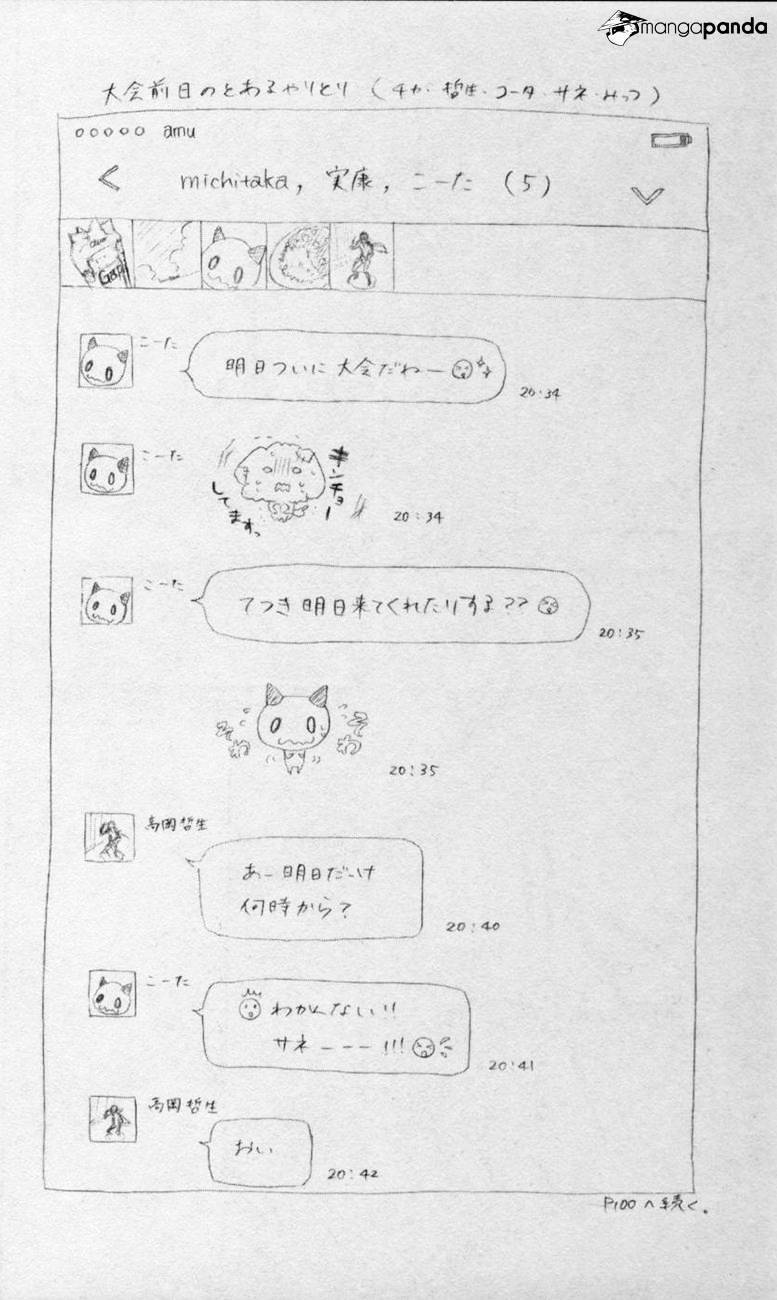 mangapanda
大会前日のとあるやりとり(チカ・哲生・コータ・サネ・みっつ)
ooooo amu
< michitaka, 実康, こーた (5)
Gapi
こーた
明日ついに大会だねー
20:34
こーた
キンチョー
してますっ
20:34
こーた
てつき明日来てくれたりする??
20:35
そわ
そわ
20:35
高岡哲生
あー明日だーけ
何時から?
20:40
こーた
わかんない!!
サネーーー!!!
20:41
高岡哲生
おい
20:42
P100へ続く。